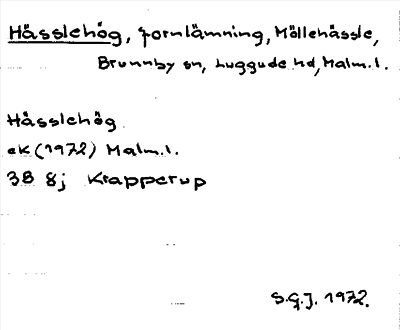 Hässlehög, fornlämning, Möllehässle,
Brunnby sn, Luggude hd, Malm.l.
Hässlehög
ek (1972) Malm.l.
3B 8j Krapperup
S.G.J. 1972.